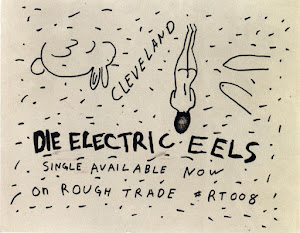 CLEVELAND
DIE ELECTRIC EELS
SINGLE AVAILABLE NOW
On ROUGH TRADE #RT008